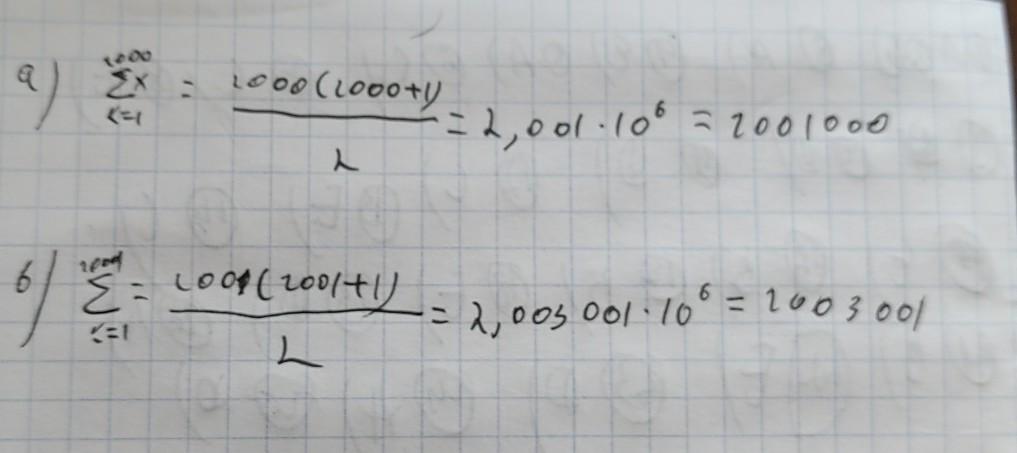 а) 2000 Σx k=1 = 2000(2000+1) / 2 = 2,001·10⁶ = 2001000
б) 2001 Σ k=1 = 2001(2001+1) / 2 = 2,003001·10⁶ = 2003001